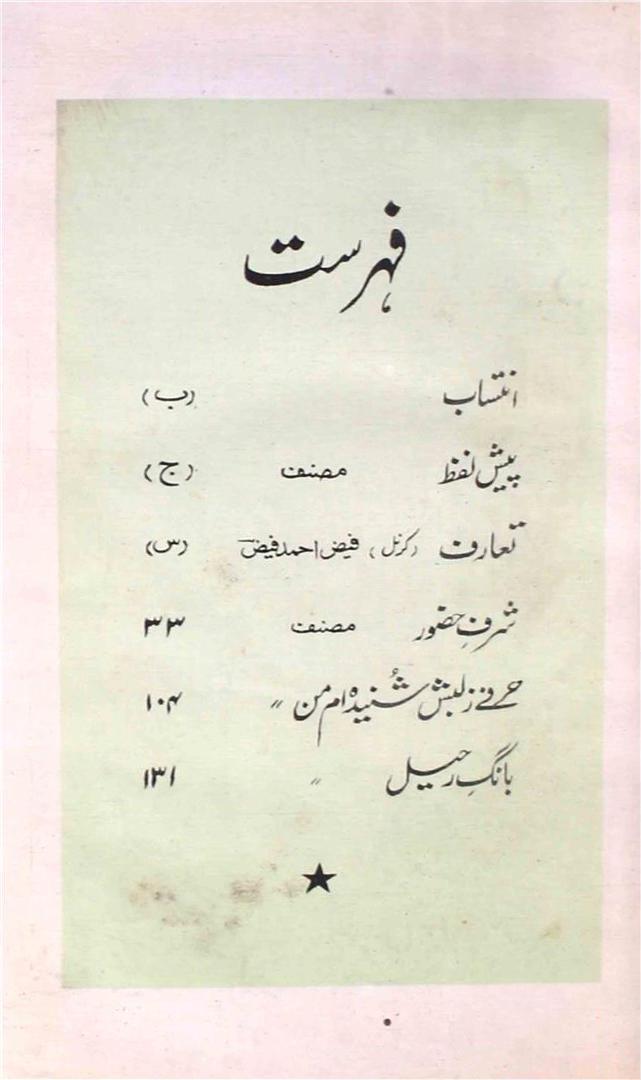 فہرست
انتساب (ب)
پیش لفظ مصنف (ج)
تعارف (کرنل) فیض احمد فیض (س)
شرفِ حضور مصنف ۳۳
حرفے ز لبش شُنیدہ ام من 〃 ۱۰۴
بانگِ رحیل 〃 ۱۳۱